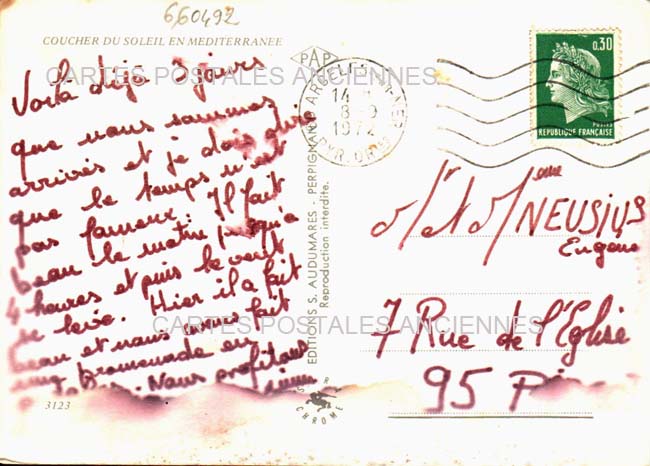 660492
COUCHER DU SOLEIL EN MEDITERRANEE
CARTES POSTALES ANCIENNES
Voilà déjà 3 jours
que nous sommes
arrivés et je dois dire
que le temps n'est
pas fameux. Il fait
beau le matin jusqu'à
4 heures et puis le vent
se lève. Hier il a fait
beau et nous avons fait
une promenade en
Nous profitons
3123
EDITIONS S. AUDUMARES - PERPIGNAN
Reproduction interdite.
CHROME
PAP
ARGELES-S-MER
14 H
8-9
1972
PYR. ORles
0,30
POSTES
REPUBLIQUE FRANÇAISE
Mr et Mme NEUSIUS
Eugène
7 Rue de l'Eglise
CARTES POSTALES ANCIENNES
95